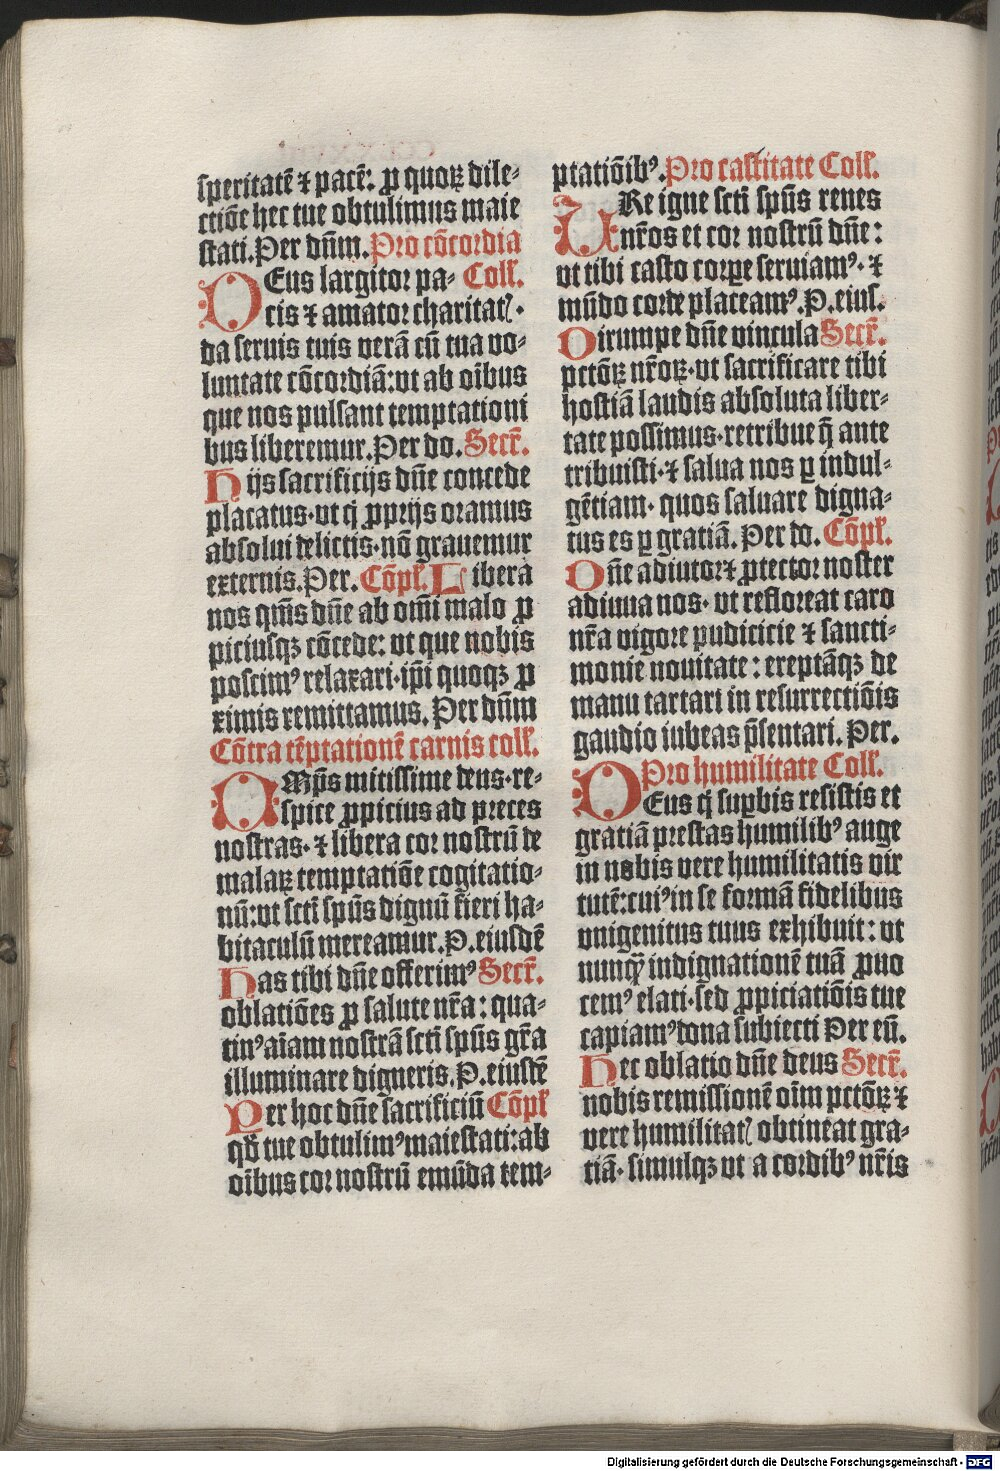 speritatē ⁊ pacē: ꝓ quoꝝ dile-
ctiōe hec tue obtulimus maie
stati. Per dn̄m. Pro cōcordia
DEus largitor pa- Coll'.
cis ⁊ amator charitatꝭ ·
da seruis tuis verā cū tua vo-
luntate cōcordiā: vt ab oībus
que nos pulsant temptationi
bus liberemur. Per do. Secr̄.
Hijs sacrificijs dn̄e concede
placatus · vt qͥ ꝓprijs oramus
absolui delictis · nō grauemur
externis. Per. Cōpl'. Libera
nos qm̄s dn̄e ab om̄i malo ꝓ
piciusqꝫ cōcede: vt que nobis
poscimꝰ relaxari · ip̄i quoqꝫ ꝓ
ximis remittamus. Per dn̄m
Cōtra tēptationē carnis coll'.
OMp̄s mitissime deus · re-
spice ꝓpicius ad preces
nostras · ⁊ libera cor nostrū de
malaꝝ temptatiōe cogitatio-
nū: vt sctī sp̄us dignū fieri ha-
bitaculū mereamur. P. eiusdē
Has tibi dn̄e offerimꝰ Secr̄.
oblatiōes ꝓ salute nr̄a: qua-
tinꝰ aīam nostrā sctī sp̄us gr̄a
illuminare digneris. P. eiusdē
Per hoc dn̄e sacrificiū Cōpl'
qđ tue obtulimꝰ maiestati: ab
oībus cor nostrū emūda tem-
ptatiōibꝰ. Pro castitate Coll'.
URe igne sctī sp̄us renes
nr̄os et cor nostrū dn̄e:
vt tibi casto corꝑe seruiamꝰ · ⁊
mūdo corde placeamꝰ. P. eius.
Dirumpe dn̄e vincula Secr̄.
pctōꝝ nr̄oꝝ · vt sacrificare tibi
hostiā laudis absoluta liber-
tate possimus · retribue q̄ ante
tribuisti · ⁊ salua nos ꝑ indul-
gētiam · quos saluare digna-
tus es ꝑ gratiā. Per do. Cōpl'.
Dn̄e adiutor ⁊ ꝓtector noster
adiuua nos · vt refloreat caro
nr̄a vigore pudicicie ⁊ sancti-
monie nouitate: ereptāqꝫ de
manu tartari in resurrectiōis
gaudio iubeas p̄sentari. Per.
Pro humilitate Coll'.
DEus qͥ suꝑbis resistis et
gratiā prestas humilibꝰ auge
in nobis vere humilitatis vir
tutē: cuiꝰ in se formā fidelibus
vnigenitus tuus exhibuit: vt
nunqͣꝫ indignationē tuā ꝓuo
cemꝰ elati · sed ꝓpiciatiōis tue
capiamꝰ dona subiecti Per eū.
Hec oblatio dn̄e deus Secr̄.
nobis remissionē oīm pctōꝝ ⁊
vere humilitatꝭ obtineat gra-
tiā · simulqꝫ vt a cordibꝰ nr̄is
Digitalisierung gefördert durch die Deutsche Forschungsgemeinschaft - DFG